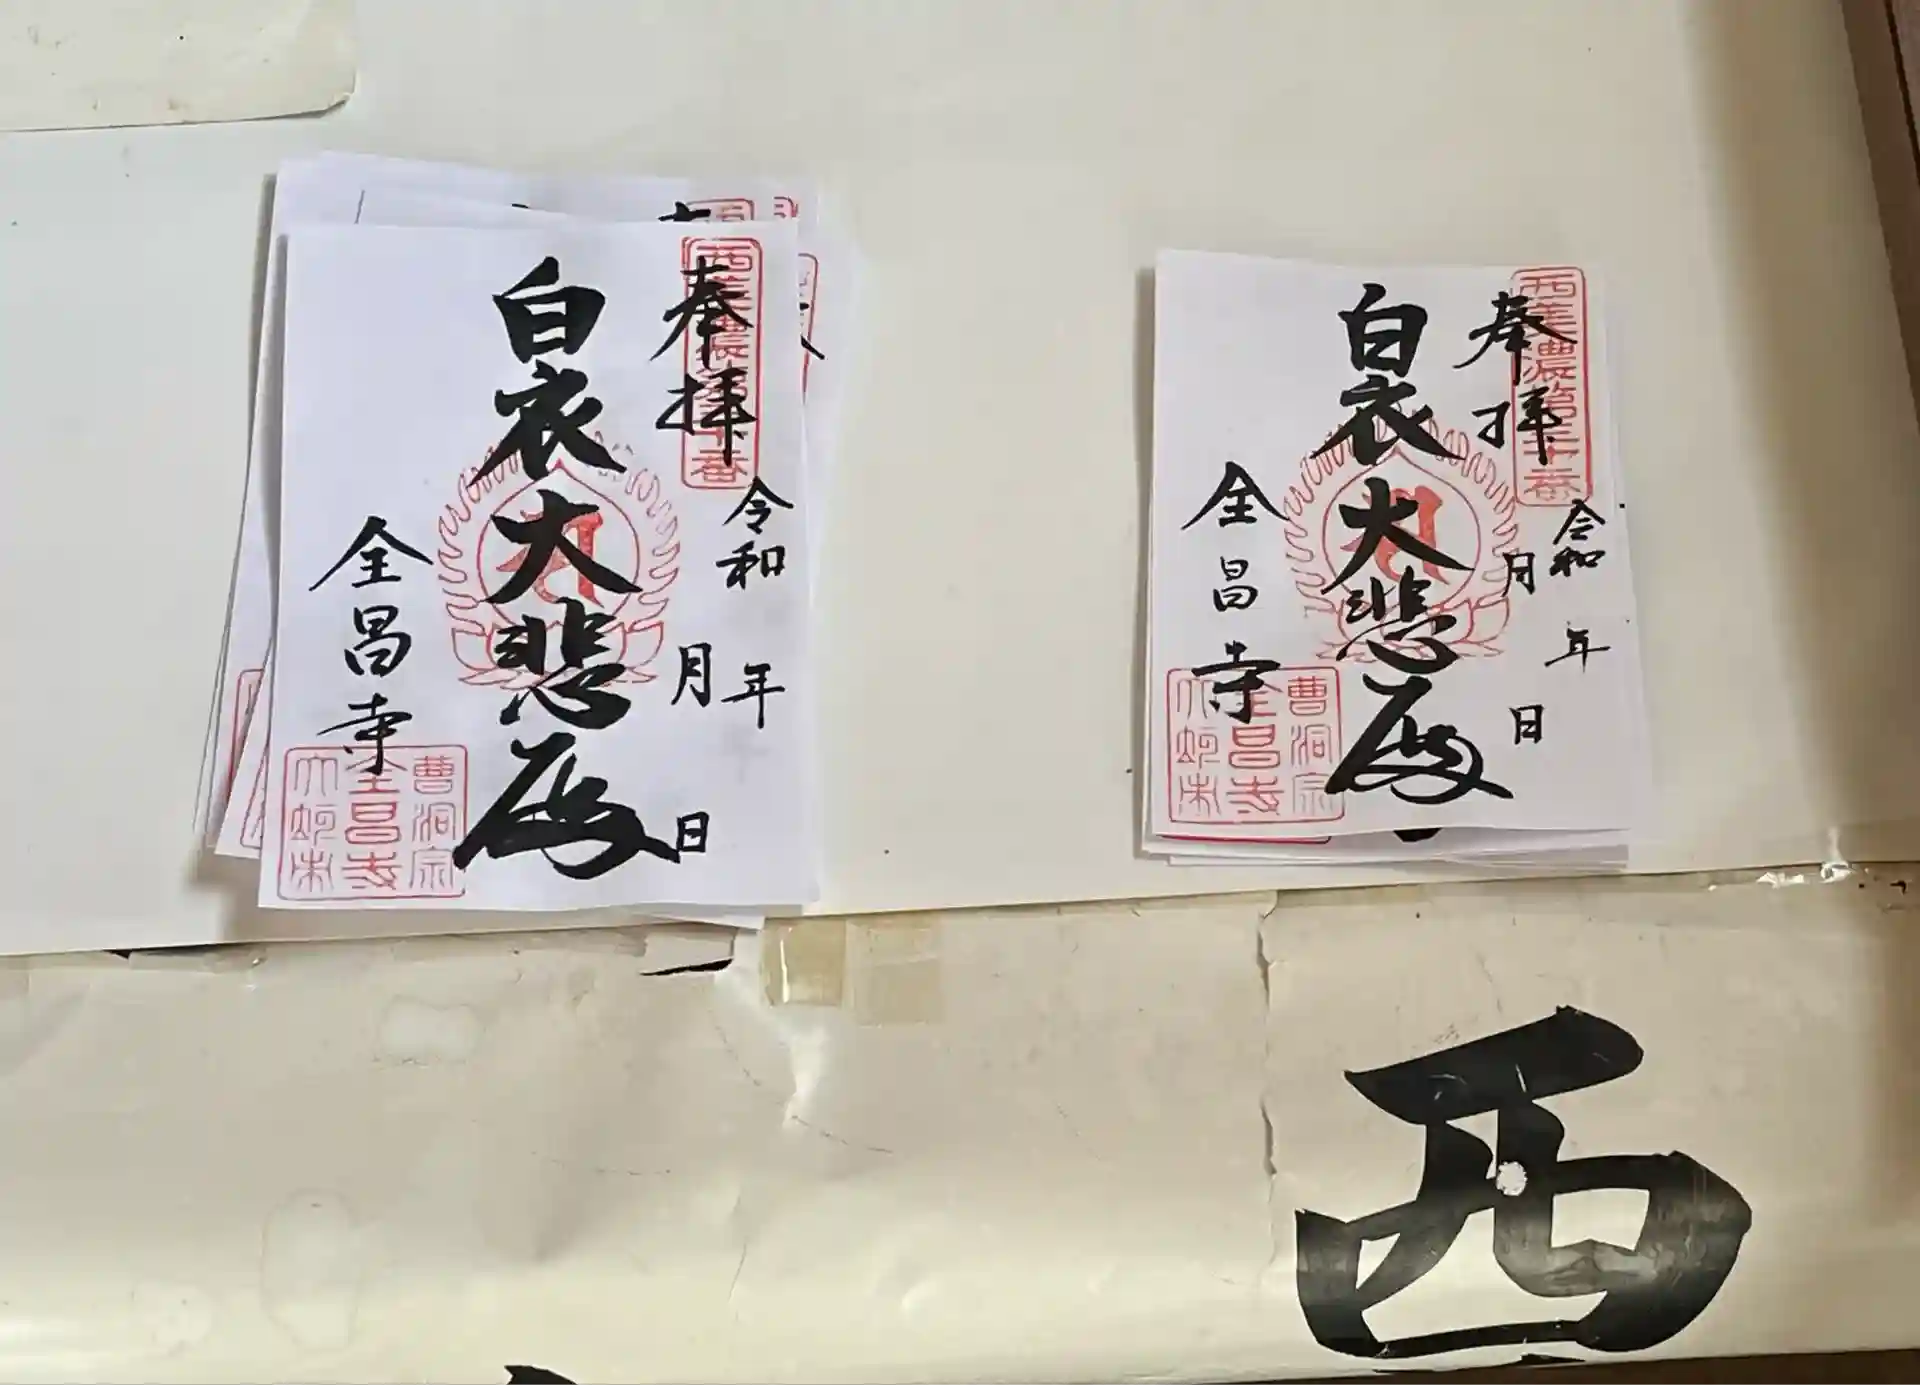 西美濃第三十番
奉拝
令和 年
月 日
白衣大悲殿
全昌寺
曹洞宗
全昌寺
西美濃第三十番
奉拝
令和 年
月 日
白衣大悲殿
全昌寺
曹洞宗
全昌寺
西